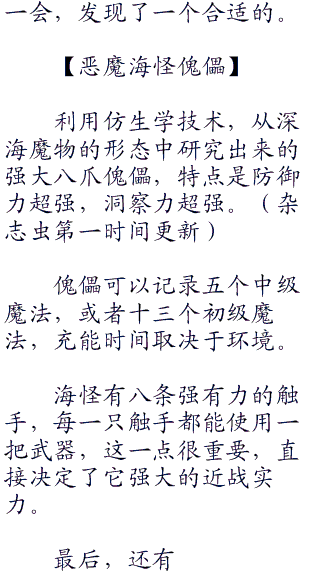 一会，发现了一个合适的。
【恶魔海怪傀儡】
利用仿生学技术，从深
海魔物的形态中研究出来的
强大八爪傀儡，特点是防御
力超强，洞察力超强。（杂
志虫第一时间更新）
傀儡可以记录五个中级
魔法，或者十三个初级魔
法，充能时间取决于环境。
海怪有八条强有力的触
手，每一只触手都能使用一
把武器，这一点很重要，直
接决定了它强大的近战实
力。
最后，还有